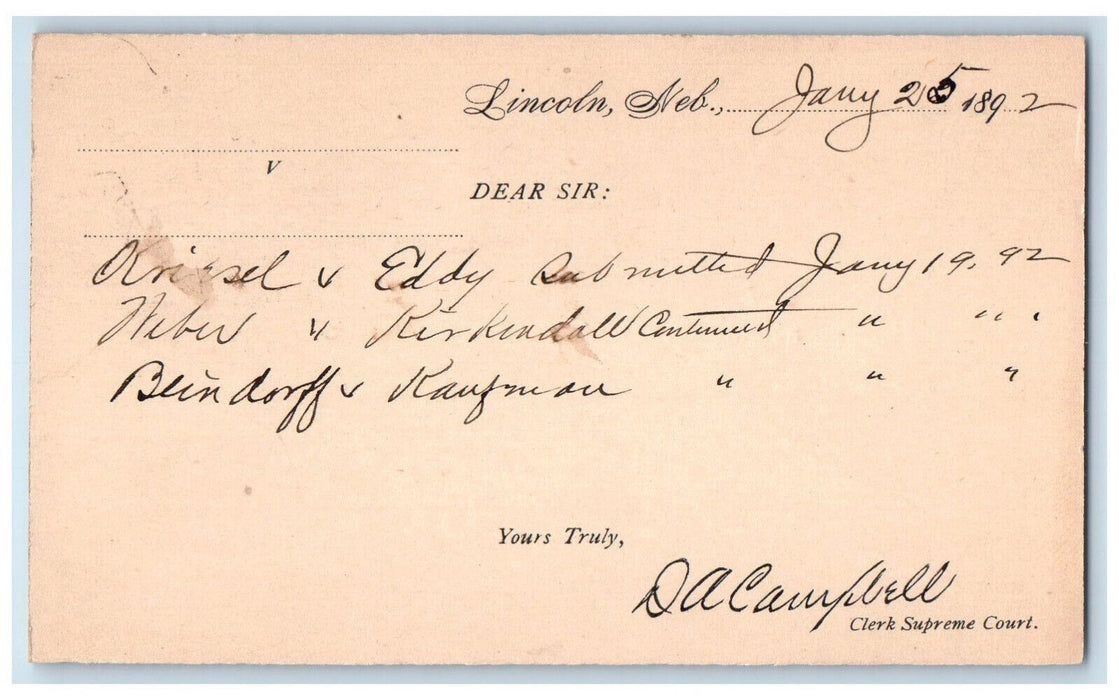 Lincoln, Neb., Jany 25 1892
v
DEAR SIR:
Kriesel v Eddy submitted Jany 19. 92
Weber v Kirkendall Continued " " "
Beindorff v Kaufman " " "
Yours Truly,
D A Campbell
Clerk Supreme Court.